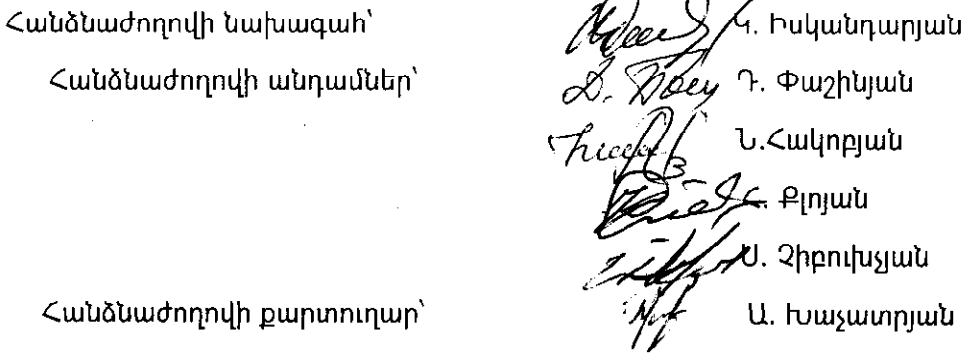 Հանձնաժողովի նախագահ՝ Կ. Իսկանդարյան
Հանձնաժողովի անդամներ՝ Դ. Փաշինյան
Ն.Հակոբյան
Քլոյան
Ս. Չիբուխչյան
Հանձնաժողովի քարտուղար՝ Ա. Խաչատրյան